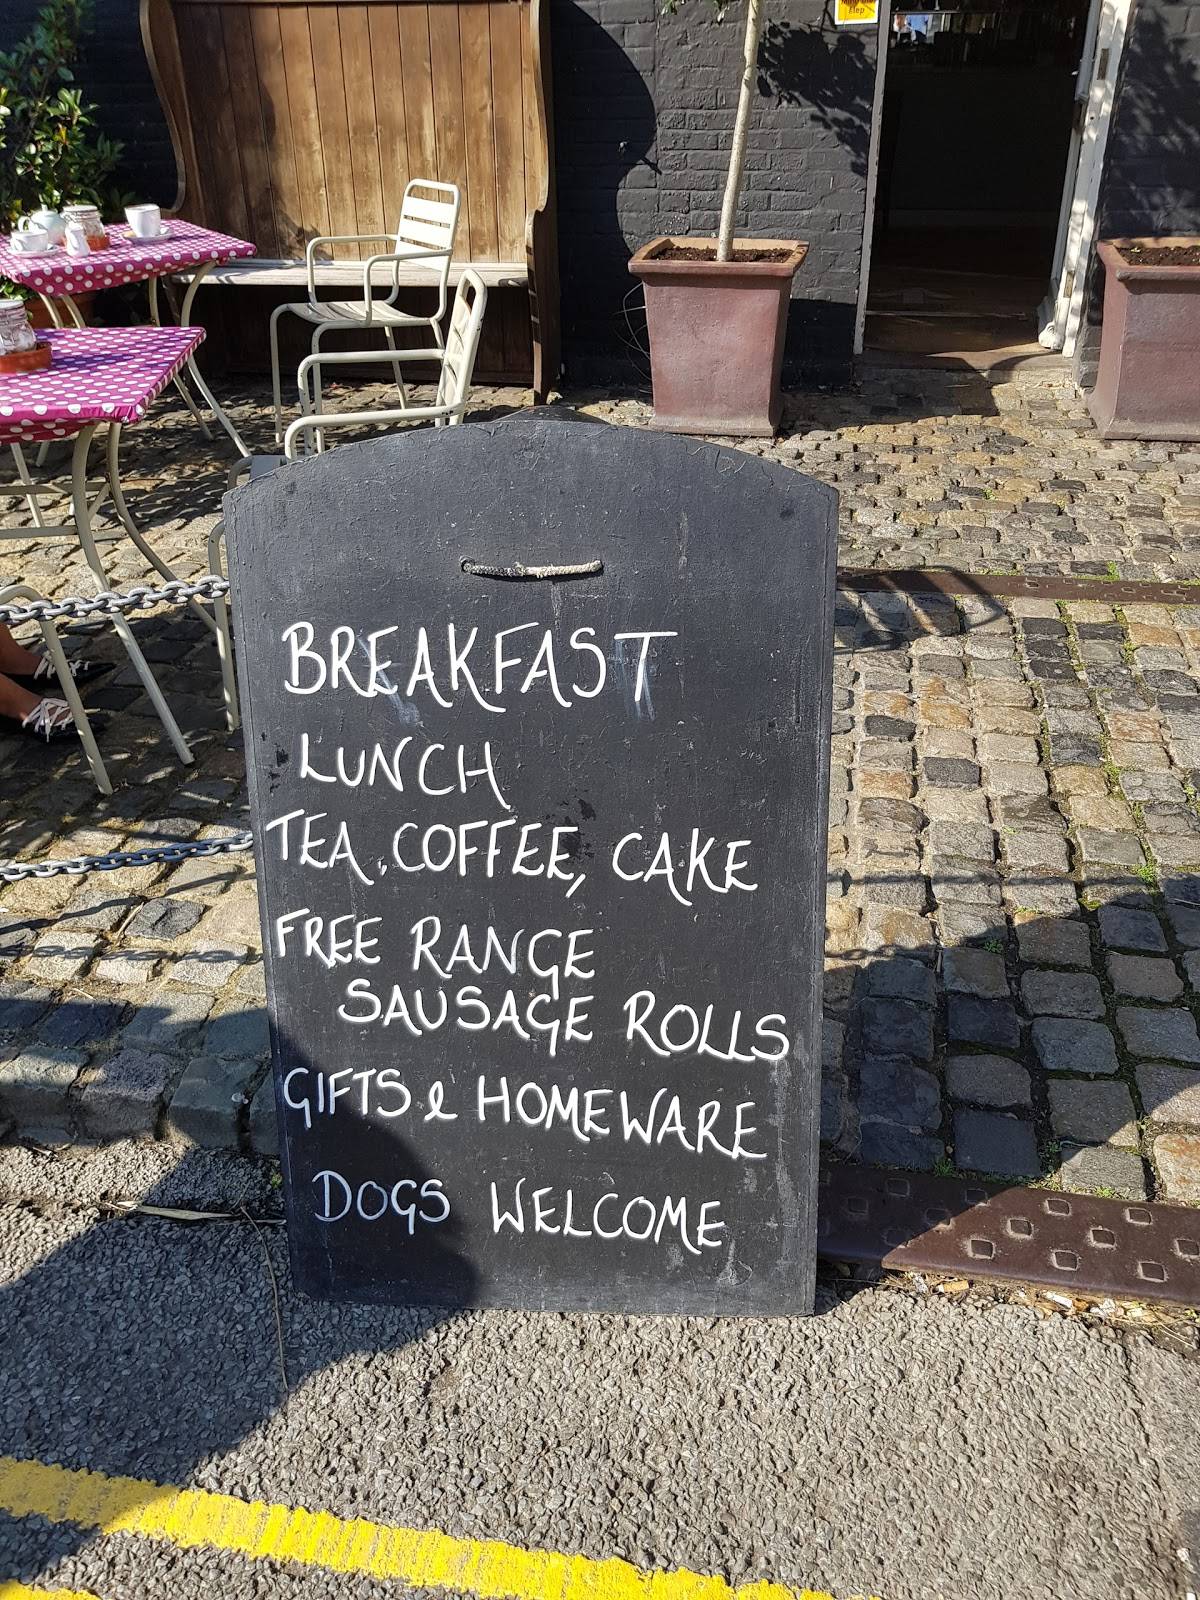 Mind the
Step
BREAKFAST
LUNCH
TEA, COFFEE, CAKE
FREE RANGE
SAUSAGE ROLLS
GIFTS & HOMEWARE
DOGS WELCOME